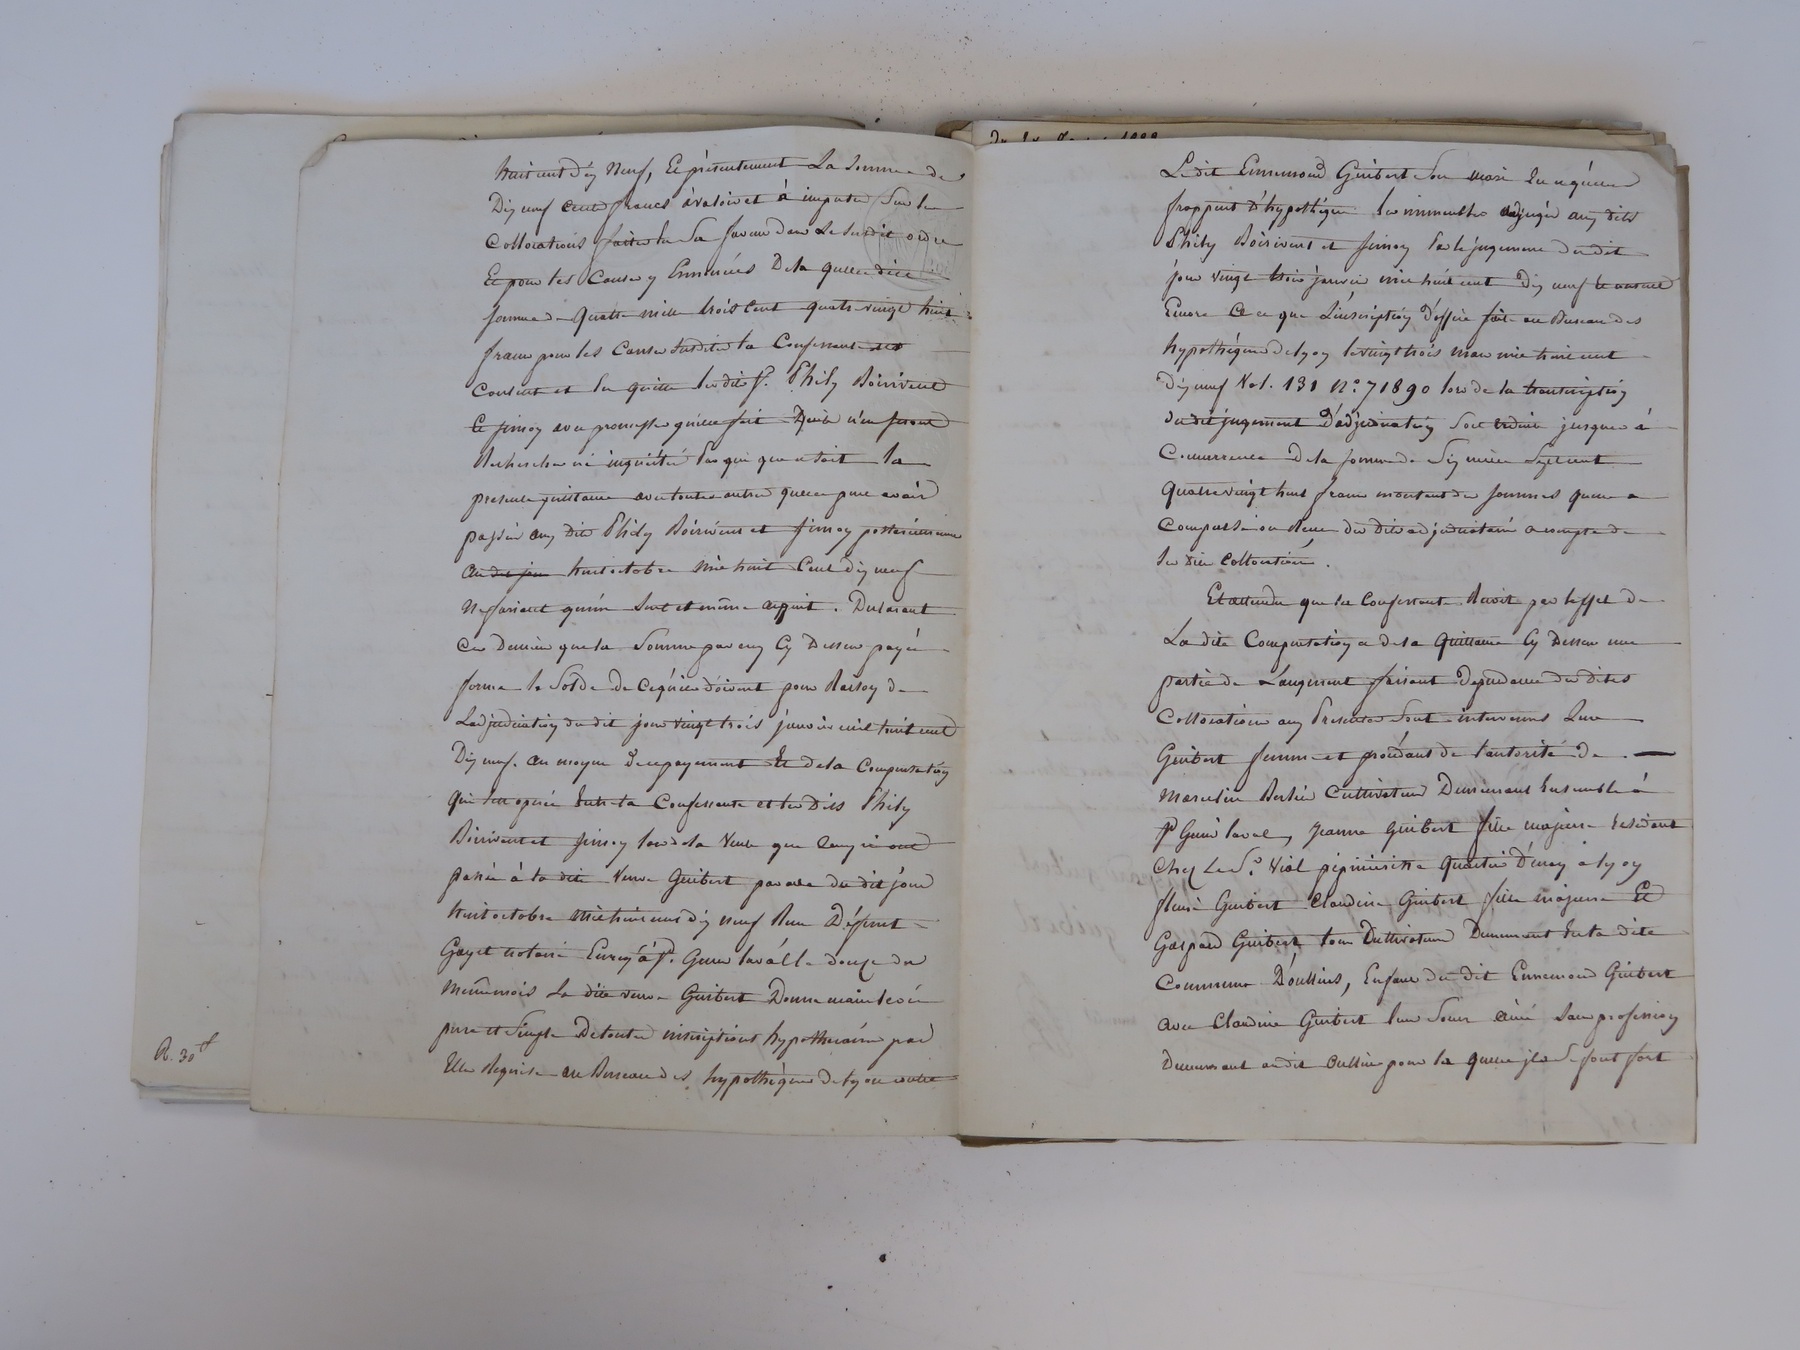 huit cent dix neuf, Et présentement La Somme de
Dix neuf cents francs à valoir et à imputer Sur les
Collocations faites en Sa faveur dans Le Susdit ordre
Et pour les Causes y Enoncées De la quelle dite
Somme de Quatre mille trois Cent quatre vingt huit
francs pour les Causes Susdites la Confessante
Content et en quitte lesdits Srs. Phily Boirivent
et finoy avec promesse qu'elle fait Qu'ils n'en Seront
Recherchés ni inquiétés Par qui que ce soit la
presente quittance avec toutes autres qu'elle peut avoir
passées aux dits Phily Boirivent et finoy postérieurement
au dit jour huit octobre mil huit Cent dix neuf
Ne faisant qu'un Seul et même acquit. Déclarant
Ces Derniers que la Somme par eux Cy Dessus payée
forme le Solde de Ce qu'ils doivent pour Raison de
L'adjudication du dit jour vingt trois janvier mil huit cent
Dix neuf. au moyen de ce payement Et de la Compensation
qui s'est opérée Entre la Confessante et les Dits Phily
Boirivent et finoy lors de la Vente que ceux ci ont
passée à la dite Veuve Guibert par acte du dit jour
huit octobre mil huit cent dix neuf Reçu Défunt
Gayet notaire Enrég. à St. Genis laval le douze du
Même mois La dite veuve Guibert Donne mainlevée
pure et Simple De toutes inscriptions hypothécaires par
Elle Requises au Bureau des hypothèques de Lyon contre
R. 30
Ledit Ennemond Guibert Son mari En ce qu'elles
frappent d'hypothèque les immeubles adjugés aux dits
Phily Boirivent et finoy Par le jugement du dit
jour vingt trois janvier mil huit cent Dix neuf
Encore à ce que L'inscription d'office faite au Bureau des
hypothèques de Lyon le vingt trois mars mil huit cent
Dix neuf Vol. 131 N.° 71890 lors de la transcription
du dit jugement D'adjudication Soit réduite jusques à
Concurrence De la Somme de Six mille Sept cent
Quatre vingt huit francs montant des Sommes qu'elle a
Compensé ou Reçu des Dits adjudicataires à compte de
Ses dites Collocations.
Et attendu que la Confessante Reçoit par l'effet de
La dite Compensation et de la Quittance Cy Dessus une
partie de L'augment faisant Dépendance des dites
Collocations aux Présentes Sont intervenus
Guibert femme et procédant de l'autorité de
Marcelin Berlié Cultivateur Demeurant Ensemble à
St Genis laval, Jeanne Guibert fille majeure Résidant
Chez Le Sr. Vial pépinieriste Quartier D'enay à Lyon
Guibert Claudine Guibert fille majeure Et
Gaspard Guibert tous Cultivateurs Demeurant En la dite
Commune D'Oullins, Enfans du dit Ennemond Guibert
avec Claudine Guibert leur Soeur ainée Sans profession
Demeurant audit oullins pour la quelle ils Se font fort